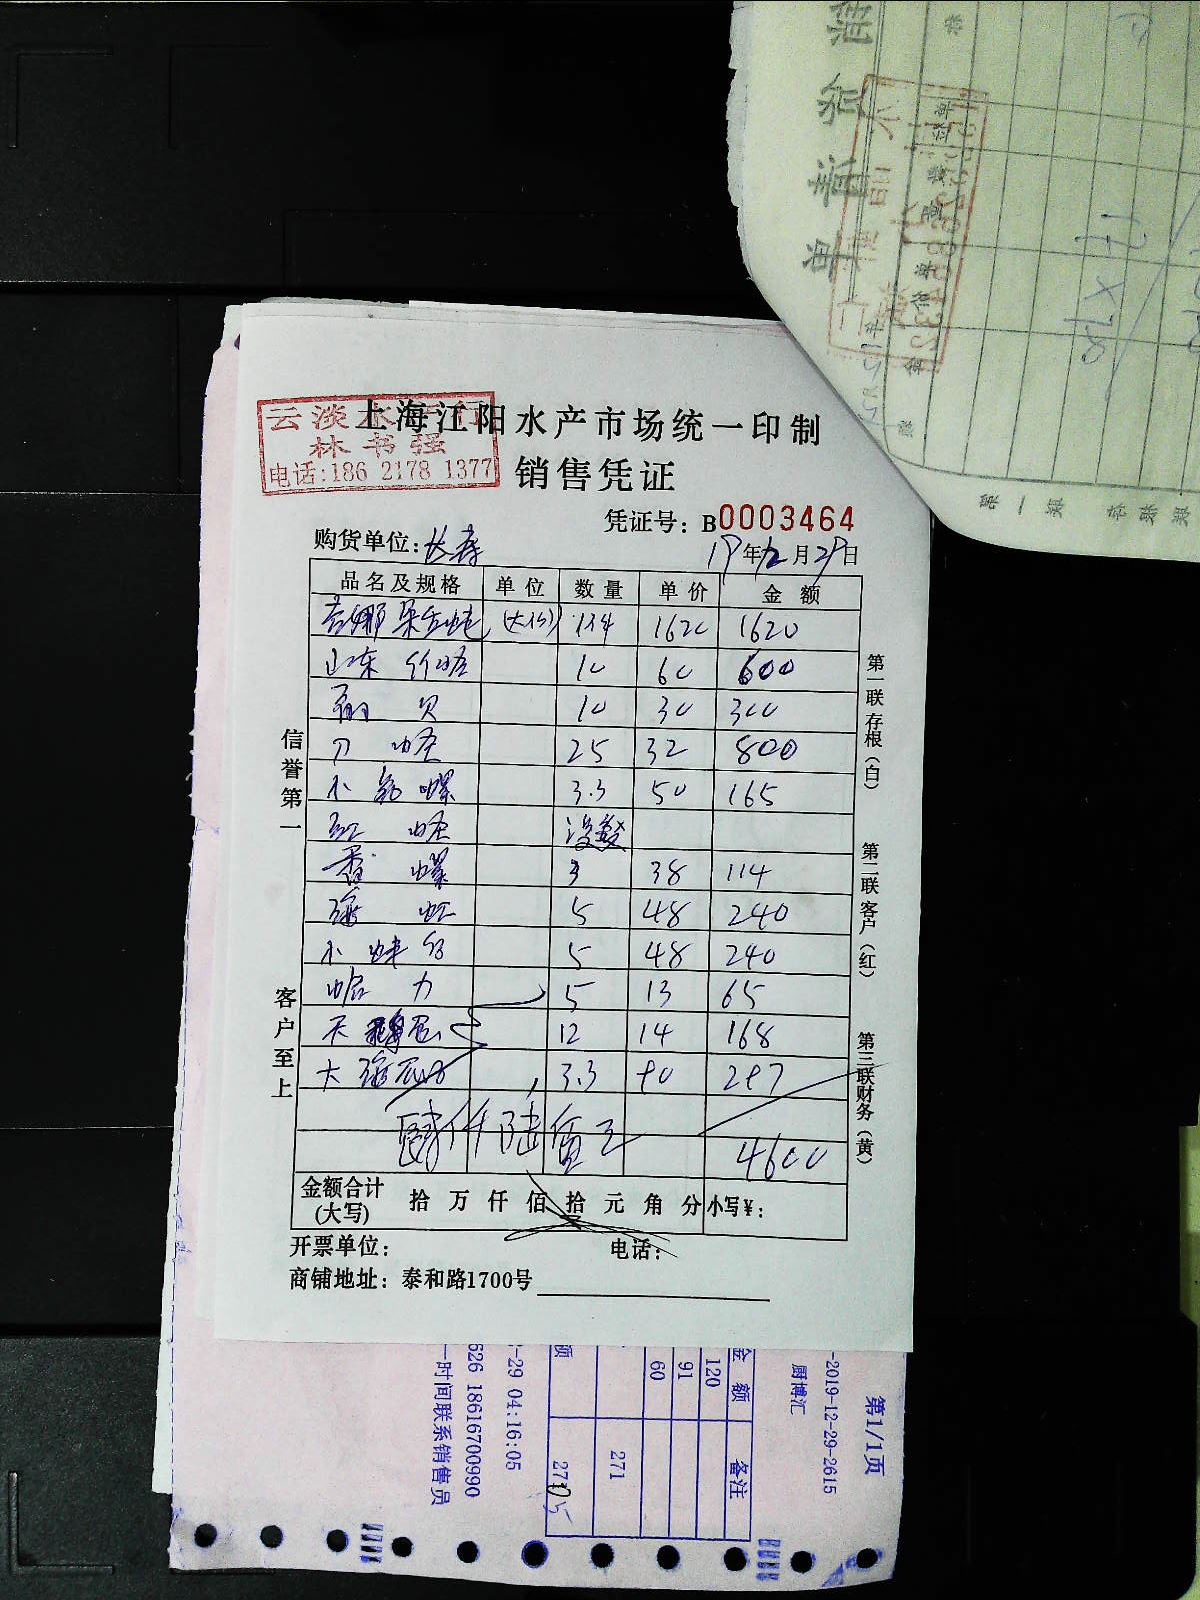 上海江阳水产市场统一印制
云淡水产行
林书强
电话:186 2178 1377
销售凭证
凭证号: B0003464
购货单位: 长寿
19年12月29日
品名及规格 单位 数量 单价 金额
1件 1620 1620
山东竹蛏 10 60 600
扇贝 10 30 300
刀蛏 25 32 800
小花螺 3.3 50 165
红蛏 没发
香螺 3 38 114
海虹 5 48 240
小鲜鲍 5 48 240
蛤力 5 13 65
天鹅蛋 12 14 168
大海瓜子 3.3 90 297
肆仟陆佰元 4600
金额合计(大写) 拾 万 仟 佰 拾 元 角 分 小写¥:
开票单位: 电话:
商铺地址: 泰和路1700号
信誉第一
客户至上
第一联存根(白)
第二联客户(红)
第三联财务(黄)
第1/1页
-2019-12-29-2615
厨博汇
金额 备注
120
91
60
271
271
-29 04:16:05
626 18616700990
一时间联系销售员
17×70